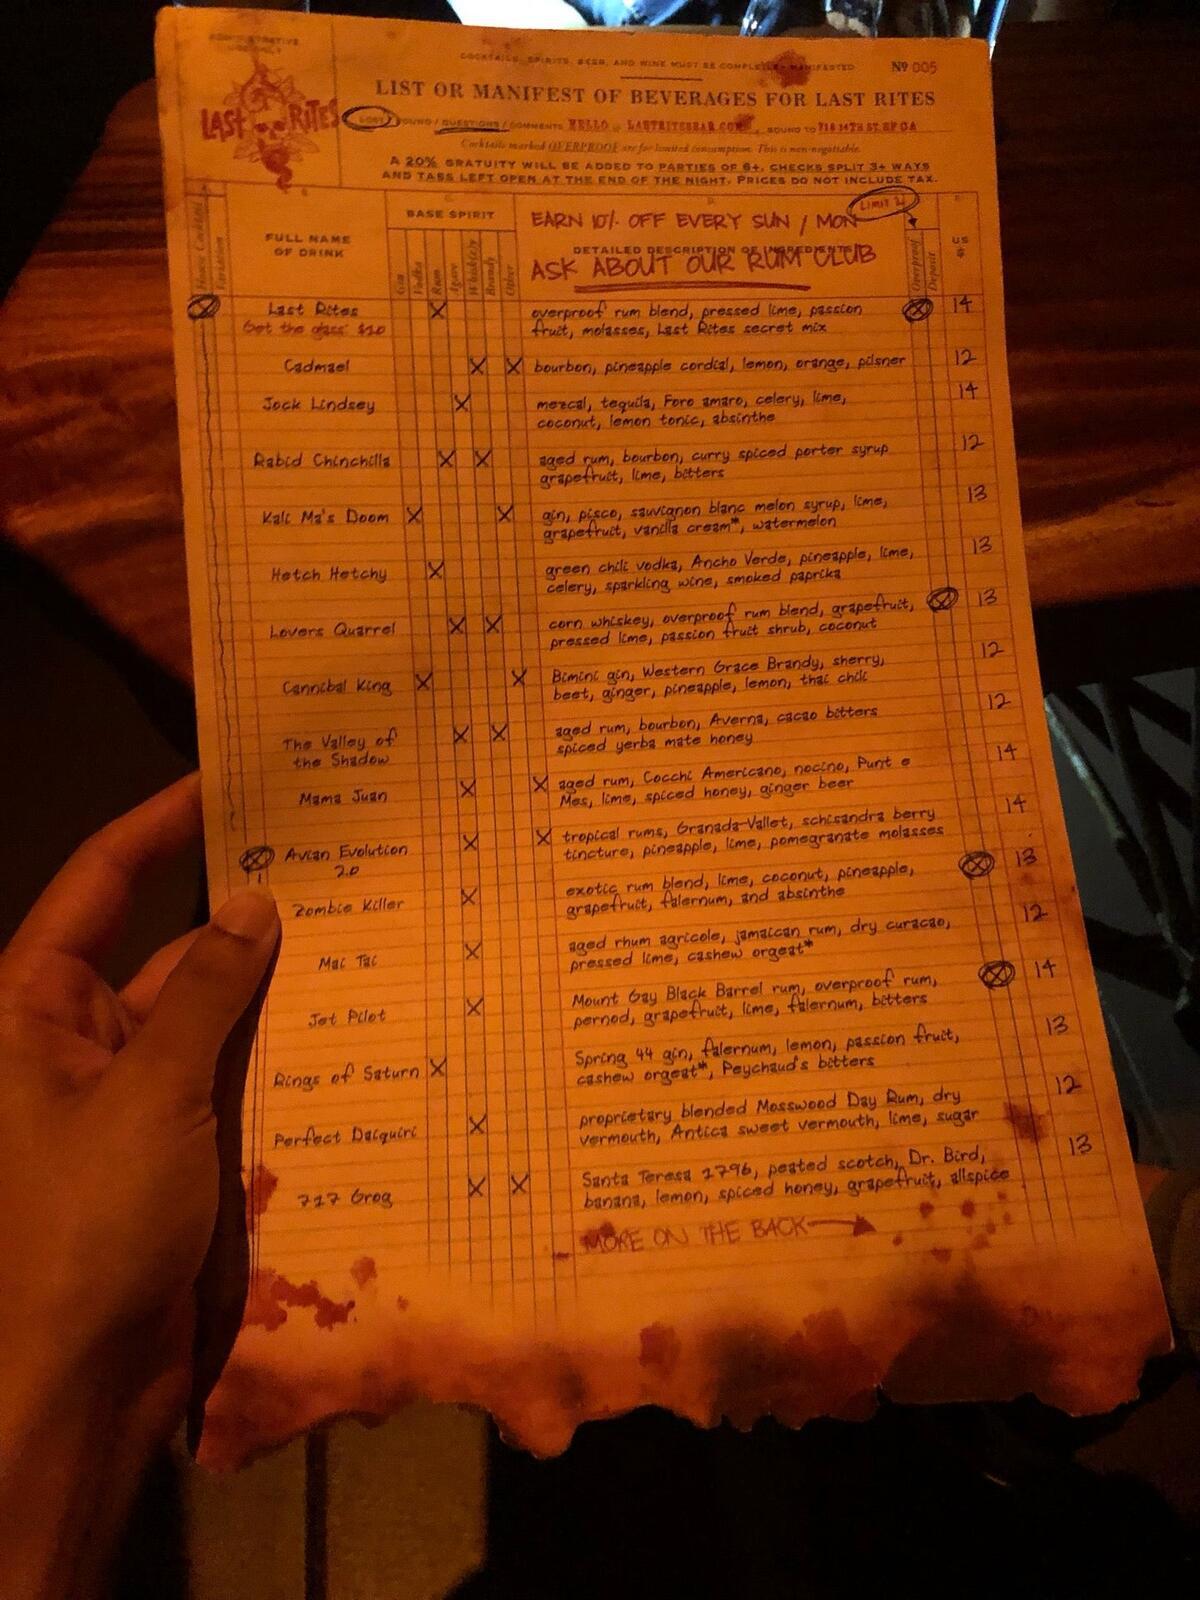 ADMINISTRATIVE
USE ONLY
LAST RITES
COCKTAILS, SPIRITS, BEER, AND WINE MUST BE COMPLETELY MANIFESTED
Nº 005
LIST OR MANIFEST OF BEVERAGES FOR LAST RITES
LOST / FOUND / QUESTIONS / COMMENTS HELLO @ LASTRITESBAR.COM BOUND TO 718 14TH ST. SF CA
Cocktails marked OVERPROOF are for limited consumption. This is non-negotiable.
A 20% GRATUITY WILL BE ADDED TO PARTIES OF 6+, CHECKS SPLIT 3+ WAYS
AND TABS LEFT OPEN AT THE END OF THE NIGHT. PRICES DO NOT INCLUDE TAX.
LIMIT 2
House Cocktail
Variation
FULL NAME
OF DRINK
BASE SPIRIT
Gin
Vodka
Rum
Agave
Whisk(e)y
Brandy
Other
EARN 10% OFF EVERY SUN / MON
DETAILED DESCRIPTION OF INGREDIENTS
ASK ABOUT OUR RUM CLUB
Overproof
Deposit
US
$
Last Rites X overproof rum blend, pressed lime, passion X 14
Get the glass $10 fruit, molasses, Last Rites secret mix
Cadmael X X bourbon, pineapple cordial, lemon, orange, pilsner 12
Jock Lindsey X mezcal, tequila, Foro amaro, celery, lime, 14
coconut, lemon tonic, absinthe
Rabid Chinchilla X X aged rum, bourbon, curry spiced porter syrup 12
grapefruit, lime, bitters
Kali Ma's Doom X X gin, pisco, sauvignon blanc melon syrup, lime, 13
grapefruit, vanilla cream*, watermelon
Hetch Hetchy X green chili vodka, Ancho Verde, pineapple, lime, 13
celery, sparkling wine, smoked paprika
Lovers Quarrel X X corn whiskey, overproof rum blend, grapefruit, X 13
pressed lime, passion fruit shrub, coconut
Cannibal King X X Bimini gin, Western Grace Brandy, sherry, 12
beet, ginger, pineapple, lemon, thai chili
The Valley of X X aged rum, bourbon, Averna, cacao bitters 12
the Shadow spiced yerba mate honey
Mama Juan X X aged rum, Cocchi Americano, nocino, Punt e 14
Mes, lime, spiced honey, ginger beer
Avian Evolution X X tropical rums, Granada-Vallet, schisandra berry 14
2.0 tincture, pineapple, lime, pomegranate molasses
Zombie Killer X exotic rum blend, lime, coconut, pineapple, X 13
grapefruit, falernum, and absinthe
Mai Tai X aged rhum agricole, jamaican rum, dry curacao, 12
pressed lime, cashew orgeat*
Jet Pilot X Mount Gay Black Barrel rum, overproof rum, X 14
pernod, grapefruit, lime, falernum, bitters
Rings of Saturn X Spring 44 gin, falernum, lemon, passion fruit, 13
cashew orgeat*, Peychaud's bitters
Perfect Daiquiri X proprietary blended Mosswood Day Rum, dry 12
vermouth, Antica sweet vermouth, lime, sugar
717 Grog X X Santa Teresa 1796, peated scotch, Dr. Bird, 13
banana, lemon, spiced honey, grapefruit, allspice
MORE ON THE BACK